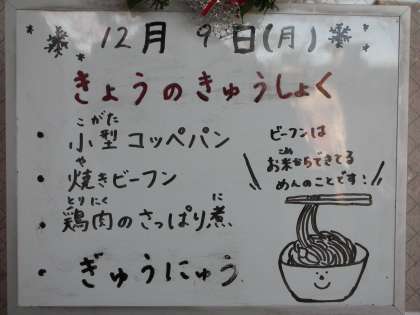 12月 9日(月)
きょうのきゅうしょく
・小型コッペパン
こがた
・焼きビーフン
や
・鶏肉のさっぱり煮
とりにく に
・ぎゅうにゅう
ビーフンは
お米からできてる
こめ
めんのことです!